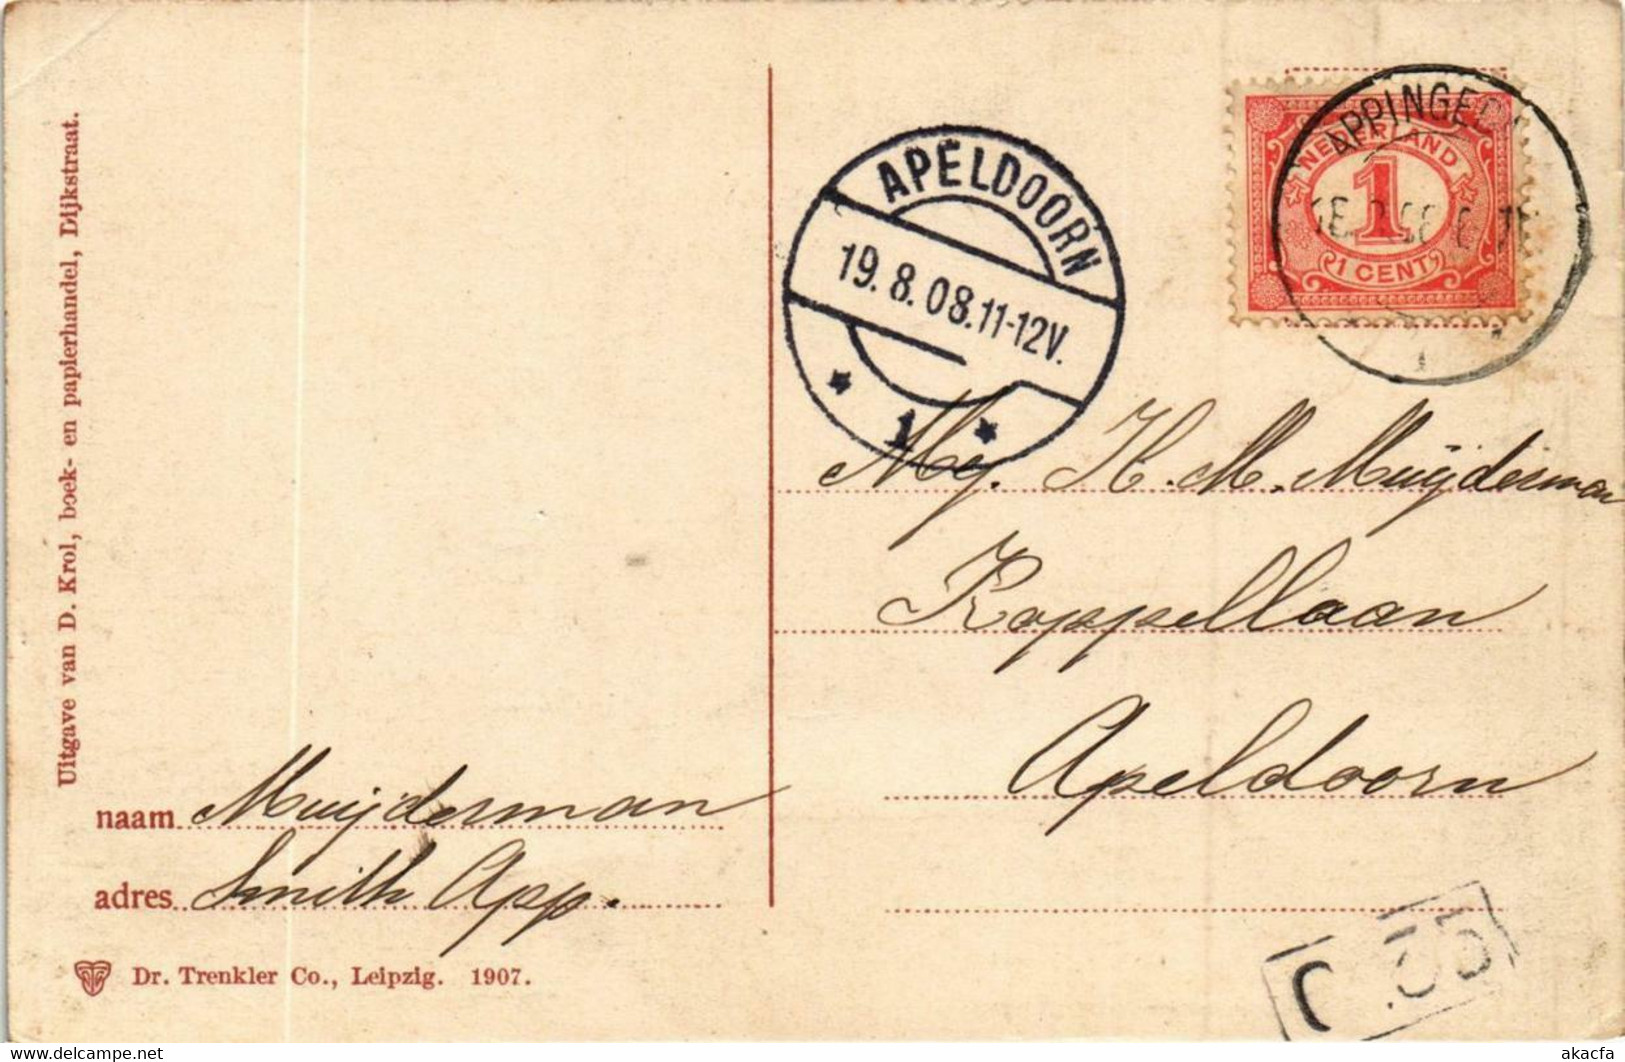 Uitgave van D. Krol, boek- en papierhandel, Dijkstraat.
APELDOORN
19.8.08.11-12V.
1
APPINGED
NEDERLAND
1
1 CENT
Mej. H. M. Muijderman
Koppellaan
Apeldoorn
naam Muijderman
adres Smith App.
Dr. Trenkler Co., Leipzig. 1907.
akacfa
delcampe.net